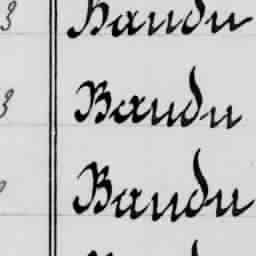 3 Bandu
3 Bandu
Bandu